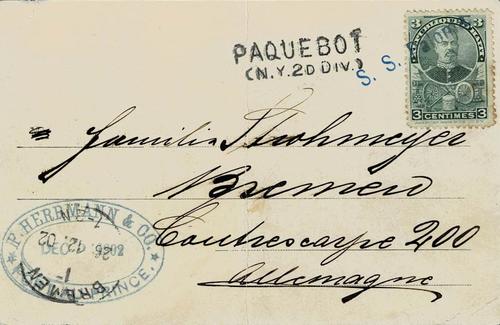 PAQUEBOT
(N.Y. 2D DIV.)
S. S.
3 3
REPUBLIQUE D'HAITI
3 CENTIMES 3
Familie Strohmeyer
Bremen
Contrescarpe 200
Allemagne
P. HERRMANN & CO.
DEC 1902
PRINCE.
BREMEN
26 12. 02